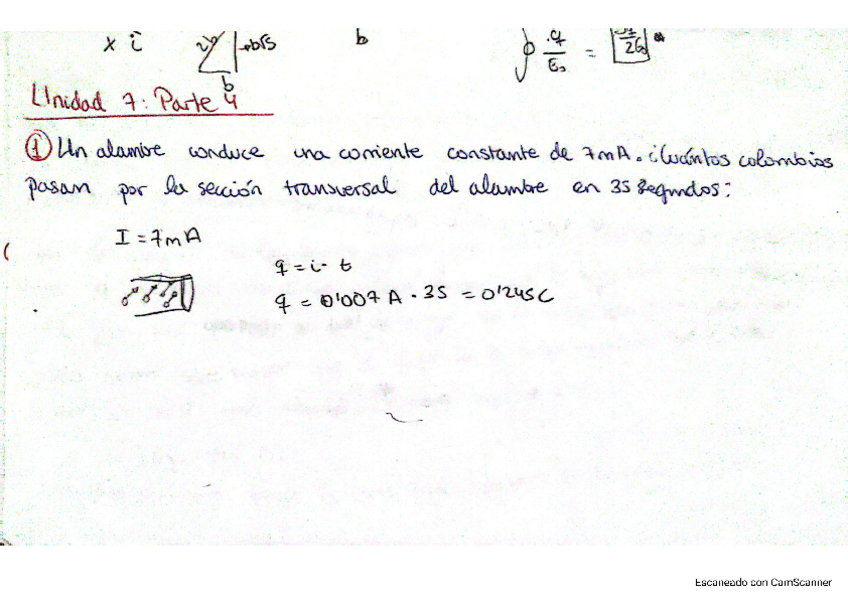 x i b
b
Unidad 7: Parte 4
① Un alambre conduce una corriente constante de 7mA. ¿Cuántos colombios
pasan por la sección transversal del alambre en 35 segundos:
I = 7mA
q = i · t
q = 0'007 A · 35 = 0'245C
Escaneado con CamScanner